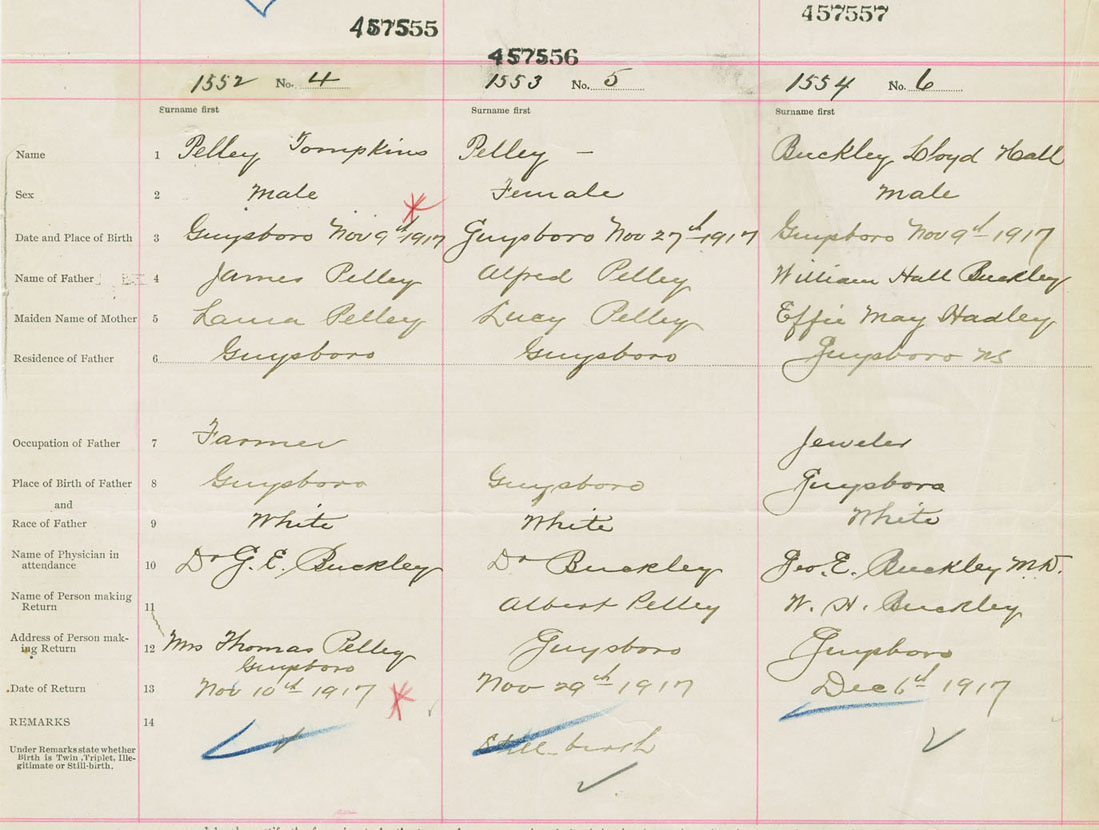 457555
457556
457557
1552 No. 4
1553 No. 5
1554 No. 6
Surname first
Surname first
Surname first
Name 1 Pelley Tompkins Pelley — Buckley Lloyd Hall
Sex 2 Male Female Male
Date and Place of Birth 3 Guysboro Nov 9th 1917 Guysboro Nov 27th 1917 Guysboro Nov 9th 1917
Name of Father 4 James Pelley Alfred Pelley William Hall Buckley
Maiden Name of Mother 5 Laura Pelley Lucy Pelley Effie May Hadley
Residence of Father 6 Guysboro Guysboro Guysboro NS
Occupation of Father 7 Farmer Jeweler
Place of Birth of Father 8 Guysboro Guysboro Guysboro
and
Race of Father 9 White White White
Name of Physician in
attendance 10 Dr G. E. Buckley Dr Buckley Geo. E. Buckley M.D.
Name of Person making
Return 11 Albert Pelley W. H. Buckley
Address of Person mak-
ing Return 12 Mrs Thomas Pelley Guysboro Guysboro
Guysboro
Date of Return 13 Nov 10th 1917 Nov 29th 1917 Dec 6th 1917
REMARKS 14
Under Remarks state whether
Birth is Twin, Triplet, Ille-
gitimate or Still-birth.
Still-birth